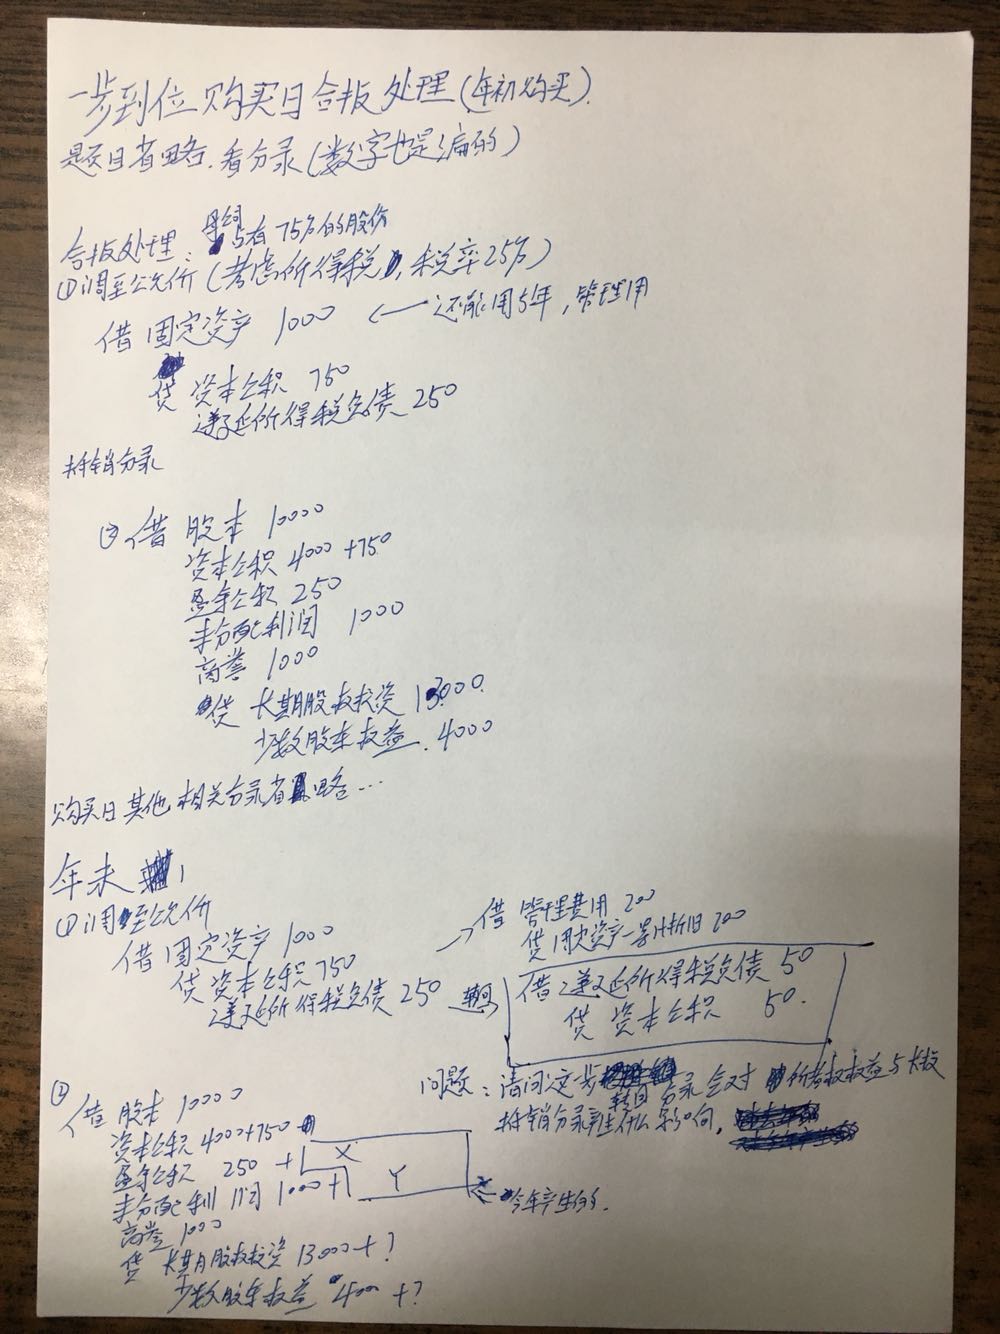 一步到位购买日合报处理(年初购买)
题目省略.看分录(数字也是编的)
合报处理:母公司占有75%的股份
①调至公允价(考虑所得税,税率25%)
借 固定资产 1000 ← 还能用5年,管理用
贷 资本公积 750
递延所得税负债 250
抵销分录
②借 股本 10000
资本公积 4000+750
盈余公积 250
未分配利润 1000
商誉 1000
贷 长期股权投资 13000
少数股东权益 4000
购买日其他相关分录省略…
年末
①调至公允价
借 固定资产 1000
贷 资本公积 750
递延所得税负债 250
→借 管理费用 200
贷 固定资产-累计折旧 200
借:递延所得税负债 50
贷 资本公积 50.
问题:请问这一步 分录会对 所有者权益与长投
抵销分录产生什么影响.
②
借 股本 10000
资本公积 4000+750
盈余公积 250 + X
未分配利润 1000 + Y ← 今年产生的.
商誉 1000
贷 长期股权投资 13000+?
少数股东权益 4000 +?